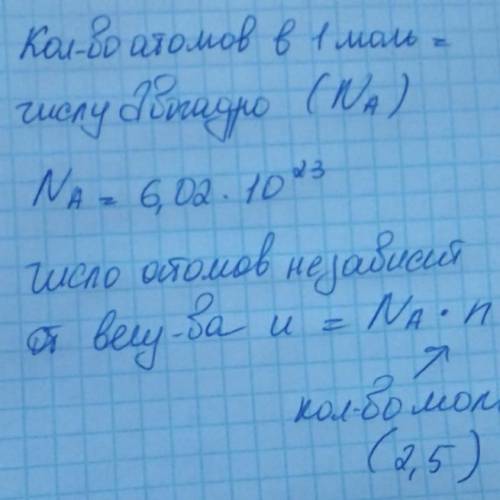 Кол-во атомов в 1 моль =
числу Авогадро (NA)
NA = 6,02 · 10²³
число атомов независит
от вещ-ва и = NA · n
кол-во мол
(2,5)